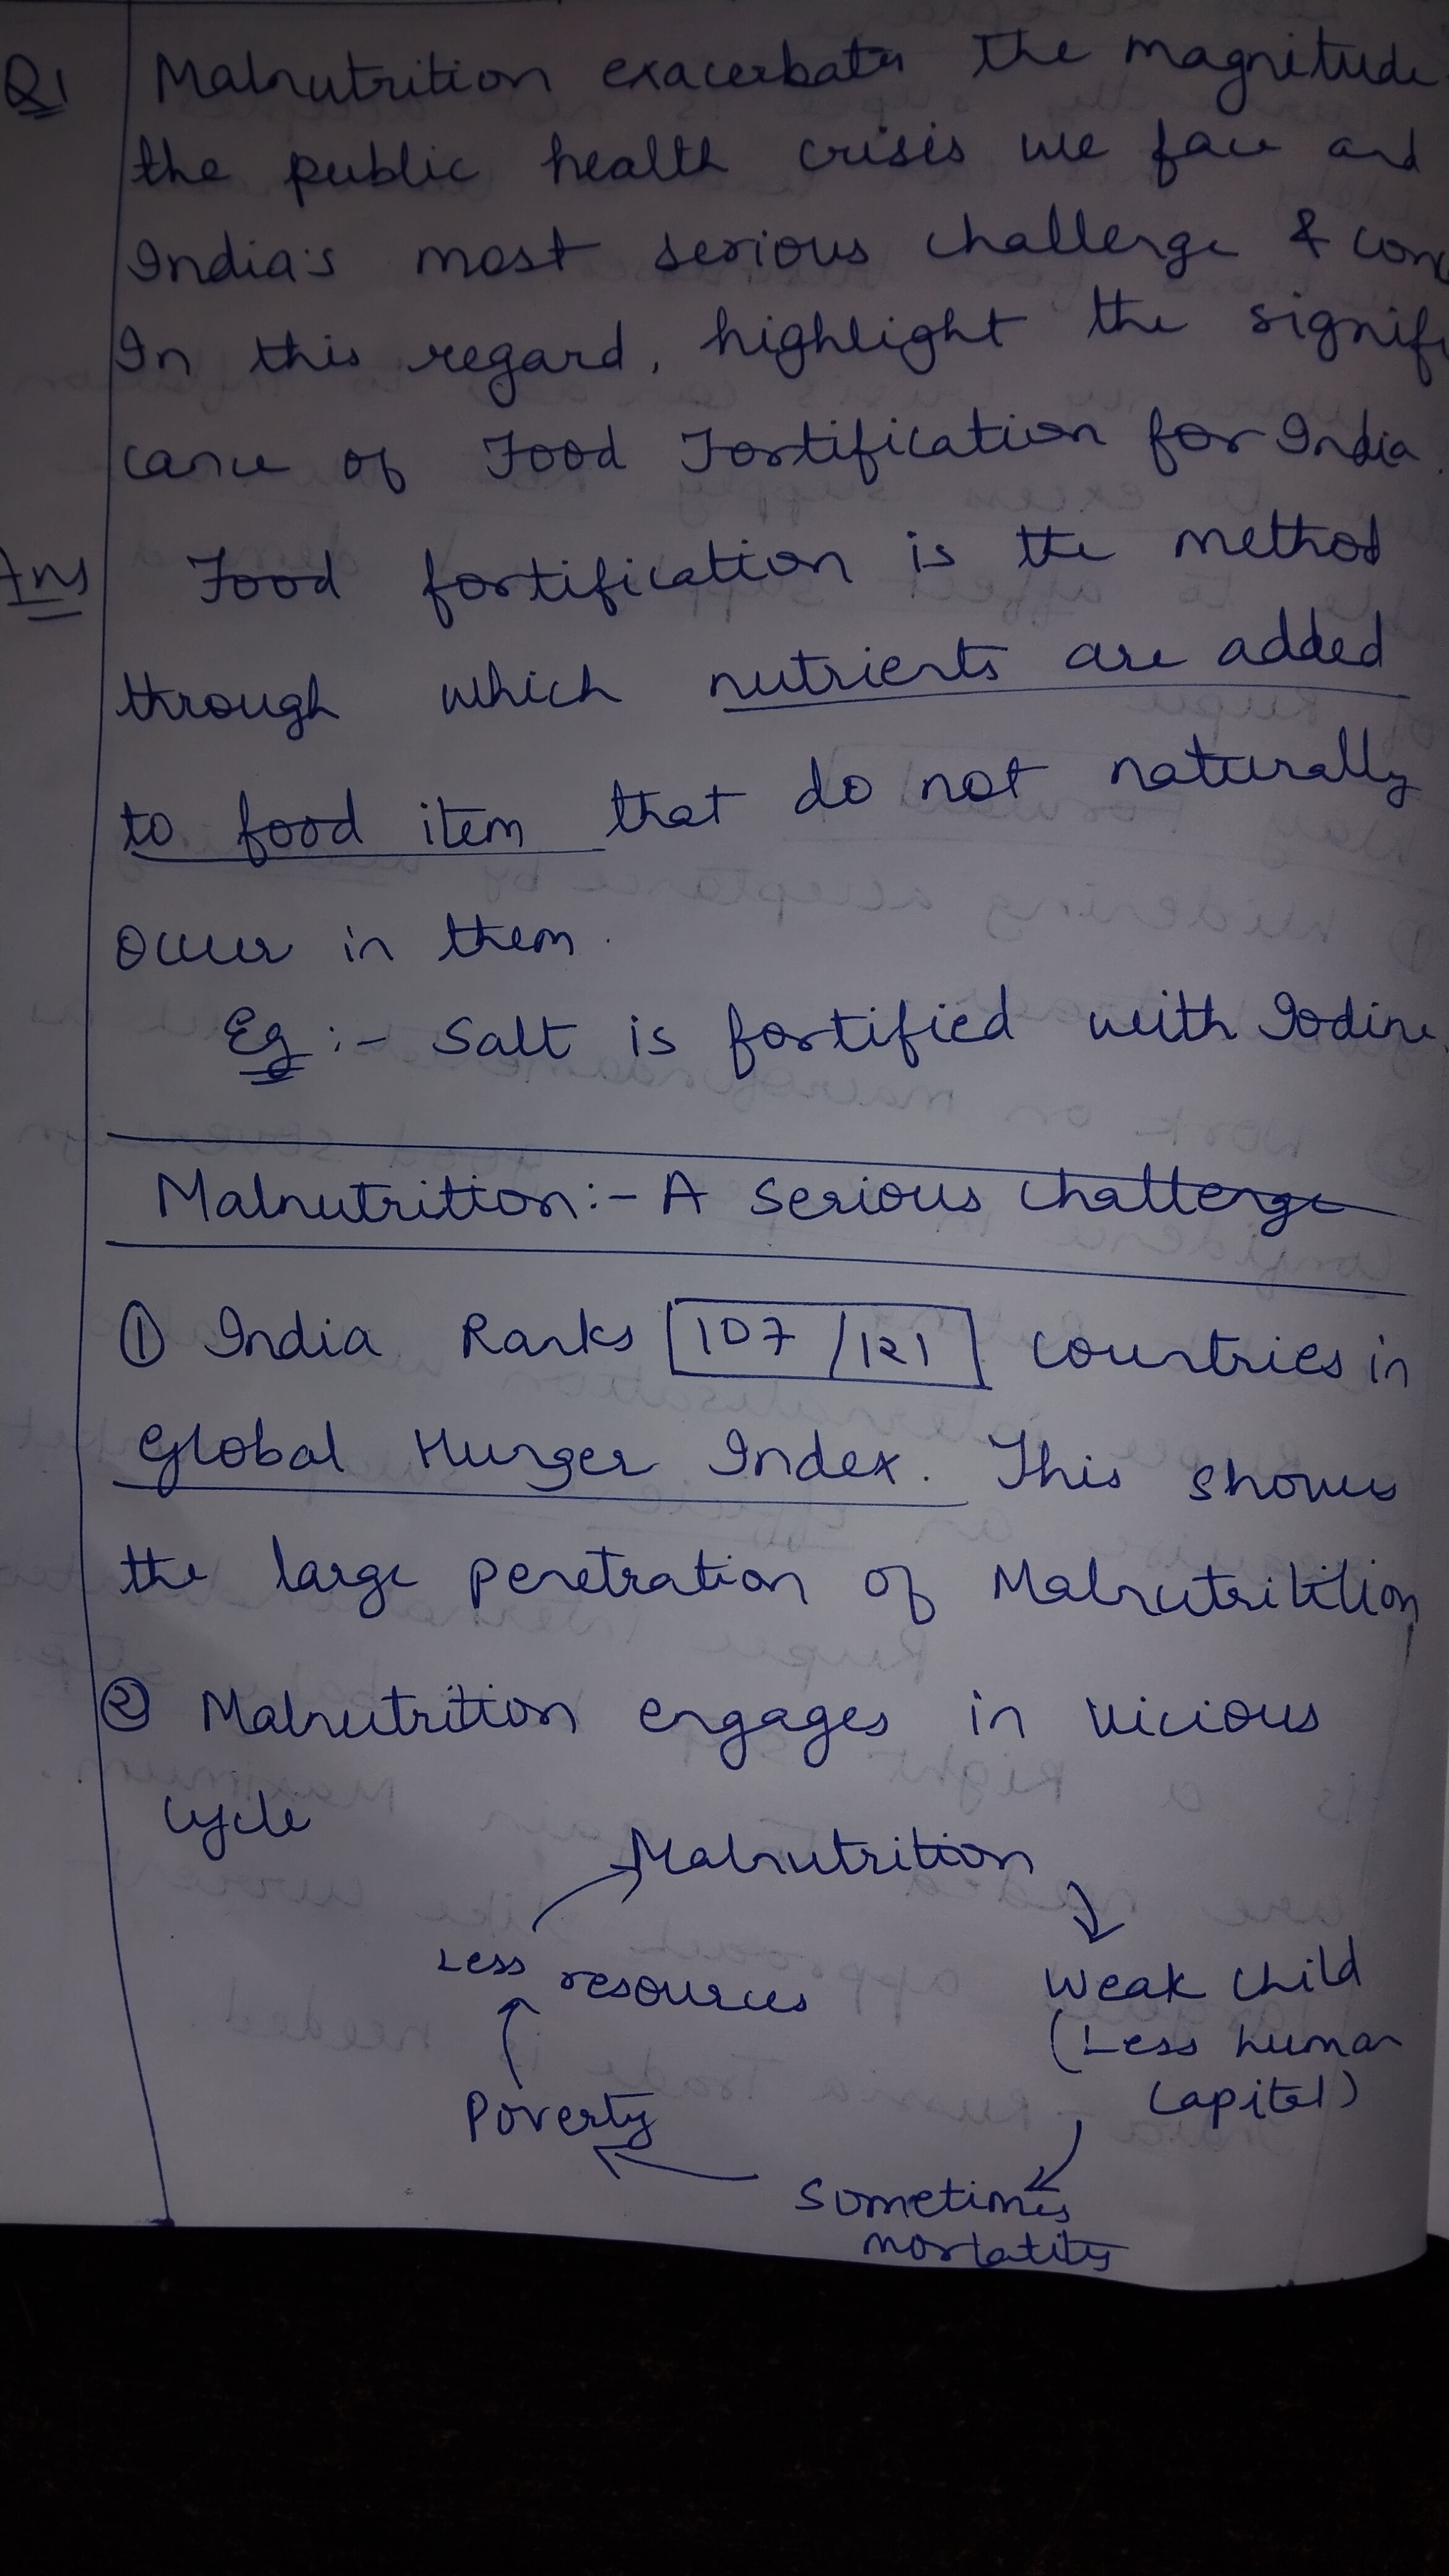 Q1 Malnutrition exacerbates the magnitude
the public health crisis we face and
India's most serious challenge & conc
In this regard, highlight the signifi
cance of Food Fortification for India.
Ans Food fortification is the method
through which nutrients are added
to food item that do not naturally
occur in them.
Eg :- Salt is fortified with Iodine.
Malnutrition:- A serious challenge
① India Ranks 107/121 countries in
Global Hunger Index. This shows
the large penetration of Malnutrition
② Malnutrition engages in vicious
cycle
Malnutrition
Less resources
Weak child
(Less human
capital)
Poverty
Sometimes
mortality